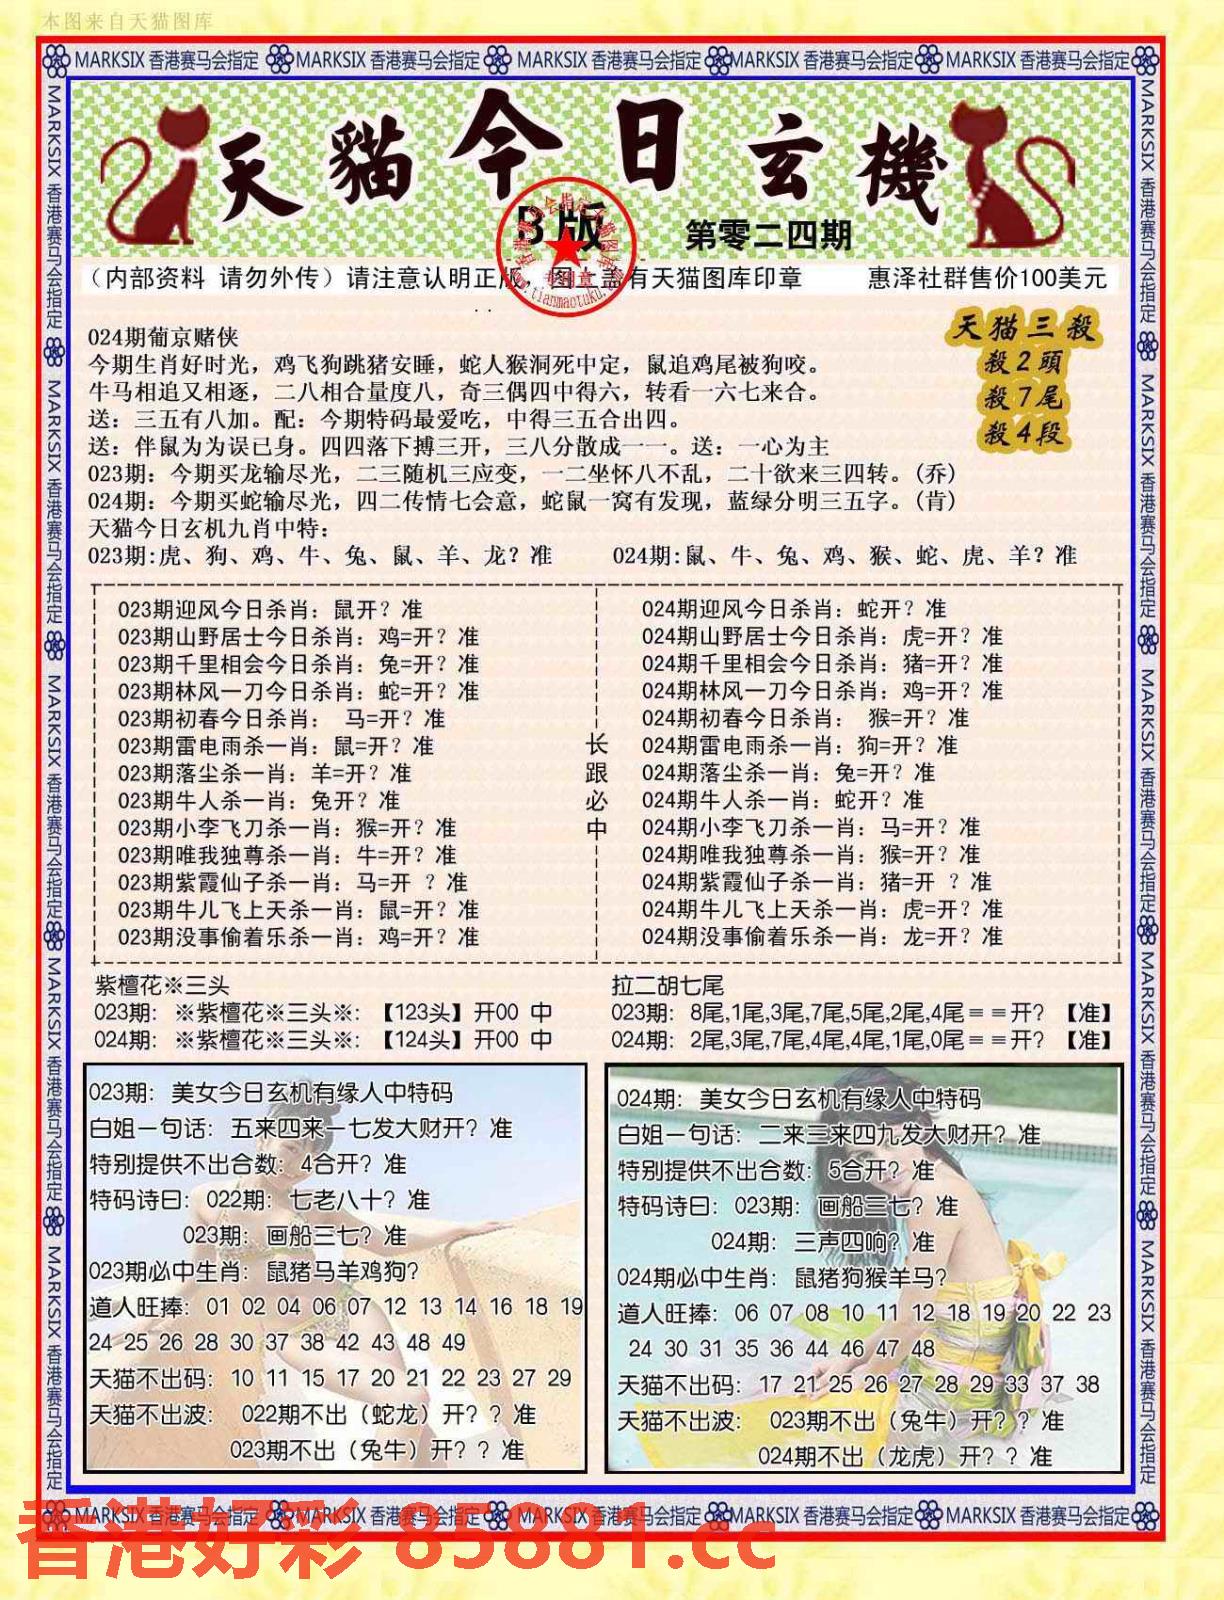 本图来自天猫图库
MARKSIX 香港赛马会指定 MARKSIX 香港赛马会指定 MARKSIX 香港赛马会指定 MARKSIX 香港赛马会指定 MARKSIX 香港赛马会指定
MARKSIX 香港赛马会指定 MARKSIX 香港赛马会指定 MARKSIX 香港赛马会指定 MARKSIX 香港赛马会指定 MARKSIX 香港赛马会指定
天貓今日玄機
B版
第零二四期
(内部资料 请勿外传)请注意认明正版 图上盖有天猫图库印章 惠泽社群售价100美元
www.tianmaotuku.
天猫三殺
殺2頭
殺7尾
殺4段
024期葡京赌侠
今期生肖好时光，鸡飞狗跳猪安睡，蛇人猴洞死中定，鼠追鸡尾被狗咬。
牛马相追又相逐，二八相合量度八，奇三偶四中得六，转看一六七来合。
送：三五有八加。配：今期特码最爱吃，中得三五合出四。
送：伴鼠为为误已身。四四落下搏三开，三八分散成一一。送：一心为主
023期：今期买龙输尽光，二三随机三应变，一二坐怀八不乱，二十欲来三四转。(乔)
024期：今期买蛇输尽光，四二传情七会意，蛇鼠一窝有发现，蓝绿分明三五字。(肯)
天猫今日玄机九肖中特：
023期:虎、狗、鸡、牛、兔、鼠、羊、龙？准
024期:鼠、牛、兔、鸡、猴、蛇、虎、羊？准
023期迎风今日杀肖：鼠开？准
023期山野居士今日杀肖：鸡=开？准
023期千里相会今日杀肖：兔=开？准
023期林风一刀今日杀肖：蛇=开？准
023期初春今日杀肖： 马=开？准
023期雷电雨杀一肖：鼠=开？准
023期落尘杀一肖：羊=开？准
023期牛人杀一肖：兔开？准
023期小李飞刀杀一肖：猴=开？准
023期唯我独尊杀一肖：牛=开？准
023期紫霞仙子杀一肖：马=开 ？准
023期牛儿飞上天杀一肖：鼠=开？准
023期没事偷着乐杀一肖：鸡=开？准
长跟必中
024期迎风今日杀肖：蛇开？准
024期山野居士今日杀肖：虎=开？准
024期千里相会今日杀肖：猪=开？准
024期林风一刀今日杀肖：鸡=开？准
024期初春今日杀肖： 猴=开？准
024期雷电雨杀一肖：狗=开？准
024期落尘杀一肖：兔=开？准
024期牛人杀一肖：蛇开？准
024期小李飞刀杀一肖：马=开？准
024期唯我独尊杀一肖：猴=开？准
024期紫霞仙子杀一肖：猪=开 ？准
024期牛儿飞上天杀一肖：虎=开？准
024期没事偷着乐杀一肖：龙=开？准
紫檀花※三头
023期：※紫檀花※三头※:【123头】开00 中
024期：※紫檀花※三头※:【124头】开00 中
拉二胡七尾
023期：8尾,1尾,3尾,7尾,5尾,2尾,4尾＝＝开？【准】
024期：2尾,3尾,7尾,4尾,4尾,1尾,0尾＝＝开？【准】
023期：美女今日玄机有缘人中特码
白姐一句话：五来四来一七发大财开？准
特别提供不出合数：4合开？准
特码诗曰：022期：七老八十？准
023期：画船三七？准
023期必中生肖：鼠猪马羊鸡狗？
道人旺捧：01 02 04 06 07 12 13 14 16 18 19
24 25 26 28 30 37 38 42 43 48 49
天猫不出码：10 11 15 17 20 21 22 23 27 29
天猫不出波： 022期不出（蛇龙）开？？准
023期不出（兔牛）开？？准
024期：美女今日玄机有缘人中特码
白姐一句话：二来三来四九发大财开？准
特别提供不出合数：5合开？准
特码诗曰：023期：画船三七？准
024期：三声四响？准
024期必中生肖：鼠猪狗猴羊马？
道人旺捧：06 07 08 10 11 12 18 19 20 22 23
24 30 31 35 36 44 46 47 48
天猫不出码：17 21 25 26 27 28 29 33 37 38
天猫不出波： 023期不出（兔牛）开？？准
024期不出（龙虎）开？？准
MARKSIX 香港赛马会指定 MARKSIX 香港赛马会指定 MARKSIX 香港赛马会指定 MARKSIX 香港赛马会指定 MARKSIX 香港赛马会指定
MARKSIX 香港赛马会指定 MARKSIX 香港赛马会指定 MARKSIX 香港赛马会指定 MARKSIX 香港赛马会指定 MARKSIX 香港赛马会指定
香港好彩 85881.cc